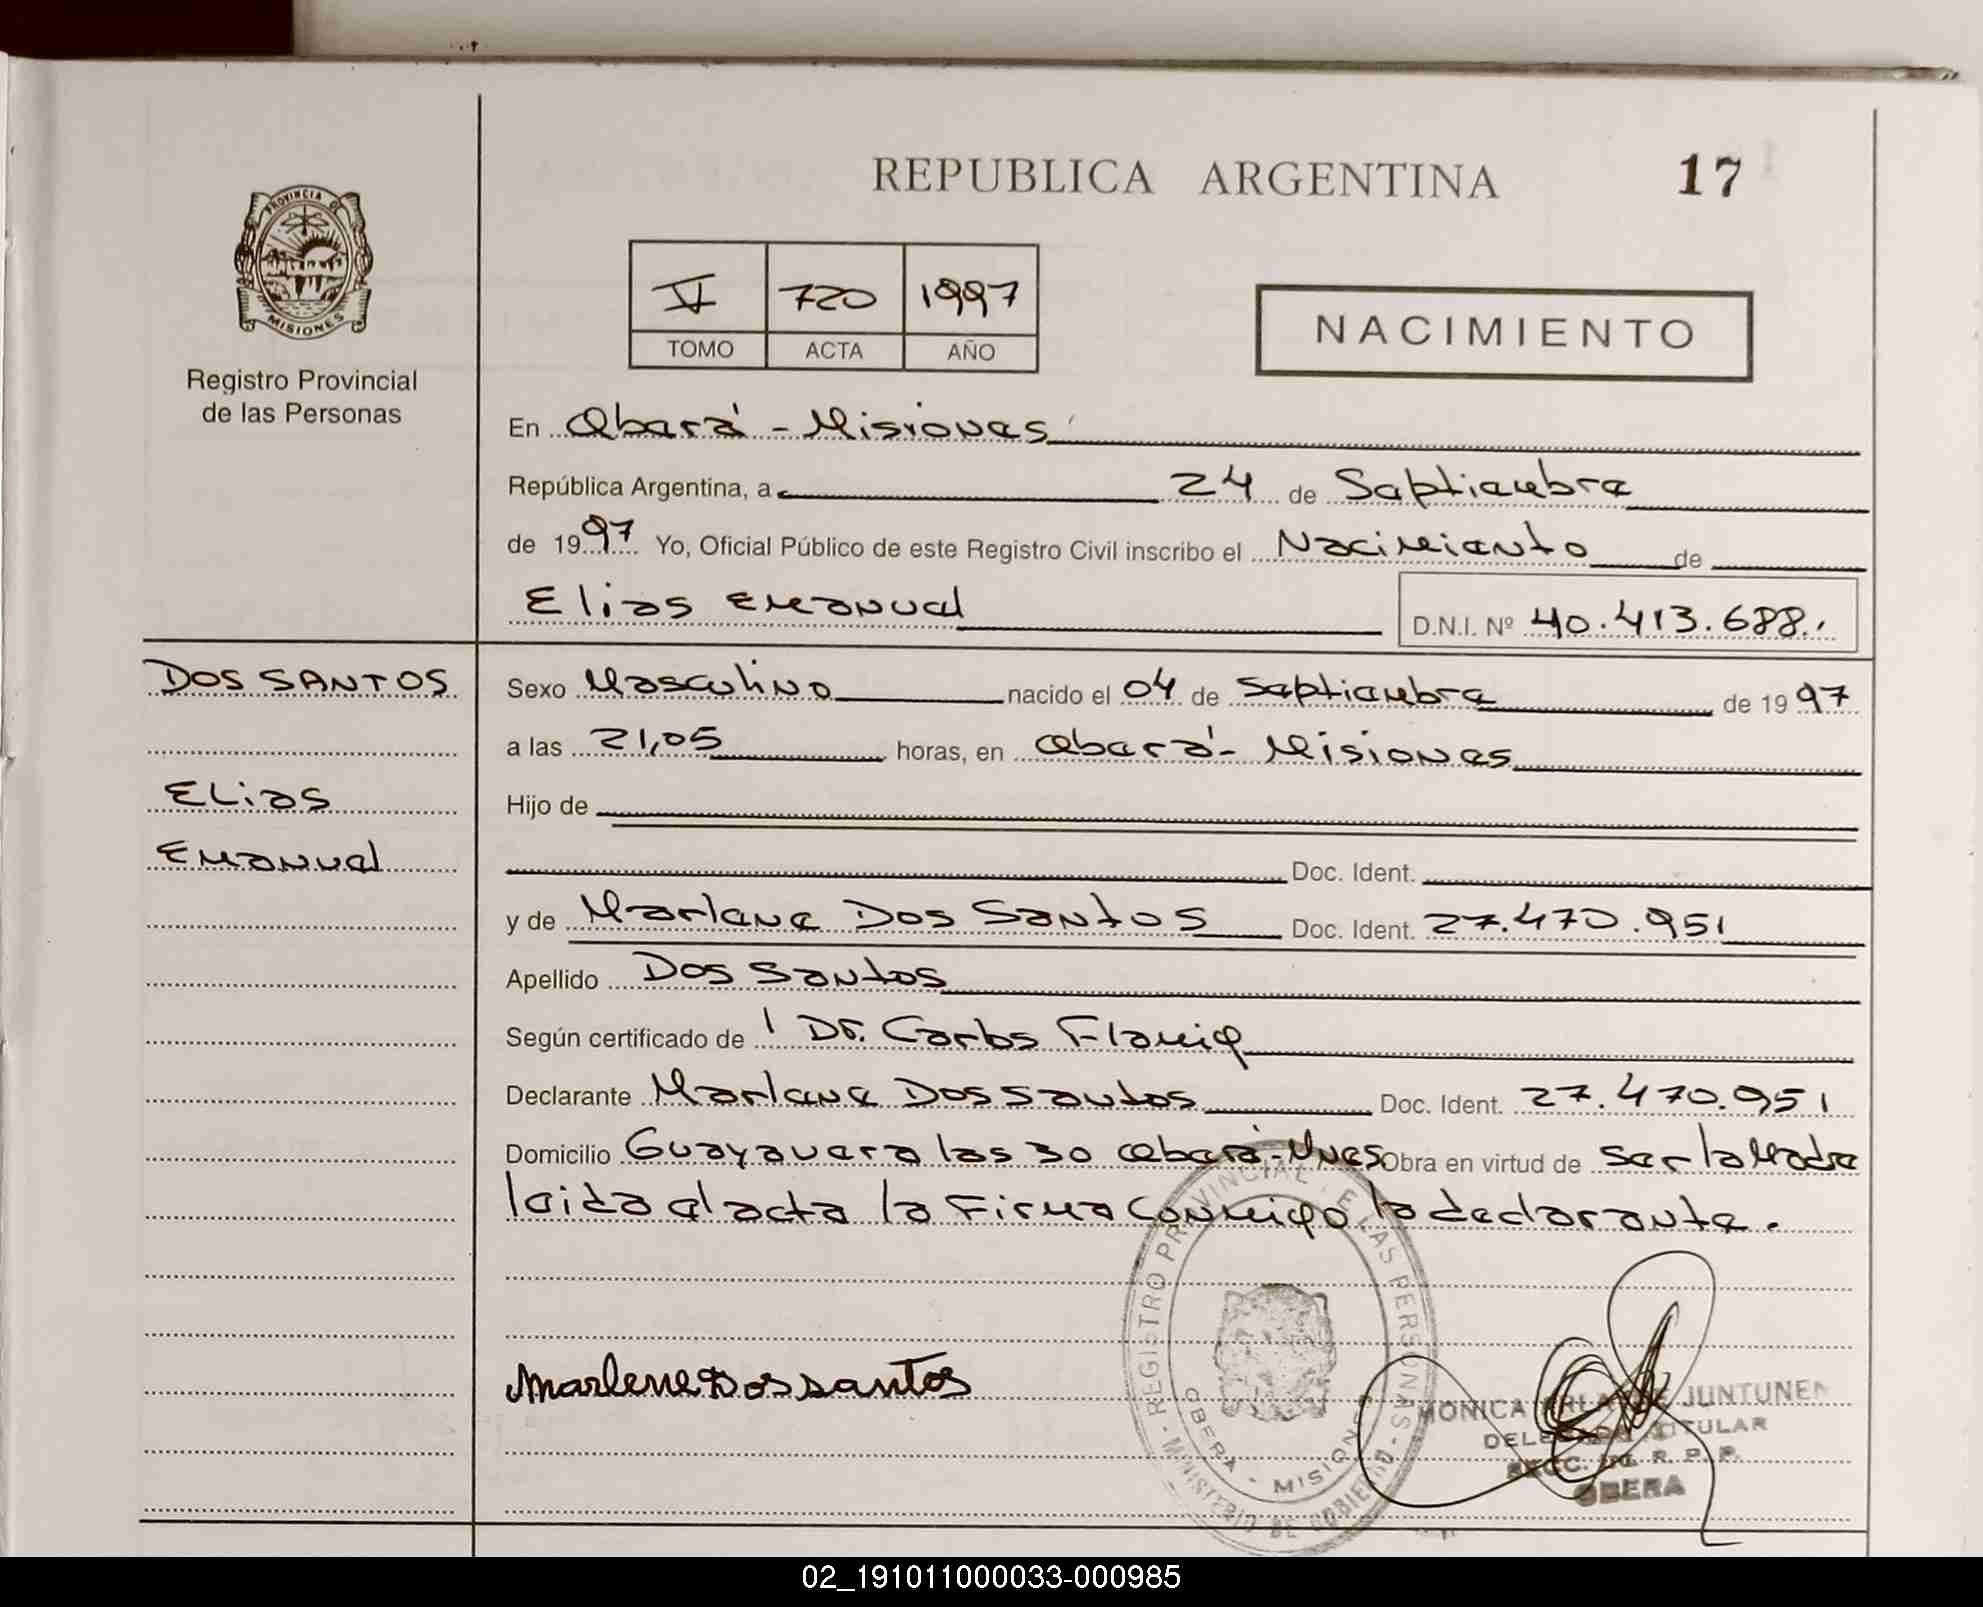 REPUBLICA ARGENTINA 17
PROVINCIA DE
MISIONES
Registro Provincial
de las Personas
V 720 1997
TOMO ACTA AÑO
NACIMIENTO
En Oberá - Misiones
República Argentina, a 24 de Septiembre
de 1997 Yo, Oficial Público de este Registro Civil inscribo el Nacimiento de
Elias Emanuel D.N.I. Nº 40.413.688.
DOS SANTOS
Elias
Emanuel
Sexo Masculino nacido el 04 de septiembre de 1997
a las 21,05 horas, en Oberá - Misiones
Hijo de
Doc. Ident.
y de Marlene Dos Santos Doc. Ident. 27.470.951
Apellido Dos Santos
Según certificado de Dr. Carlos Flamig
Declarante Marlene Dos Santos Doc. Ident. 27.470.951
Domicilio Guayavera las 30 Oberá - Mnes Obra en virtud de ser la Madre
leida el acta la Firma Conmigo la declarante.
Marlene Dos santos
REGISTRO PROVINCIAL DE LAS PERSONAS - MINISTERIO DE GOBIERNO -
OBERA - MISIONES
MONICA DE JUNTUNEN
DELEGADA TITULAR
SECC. DEL R. P. P.
OBERA
02_191011000033-000985